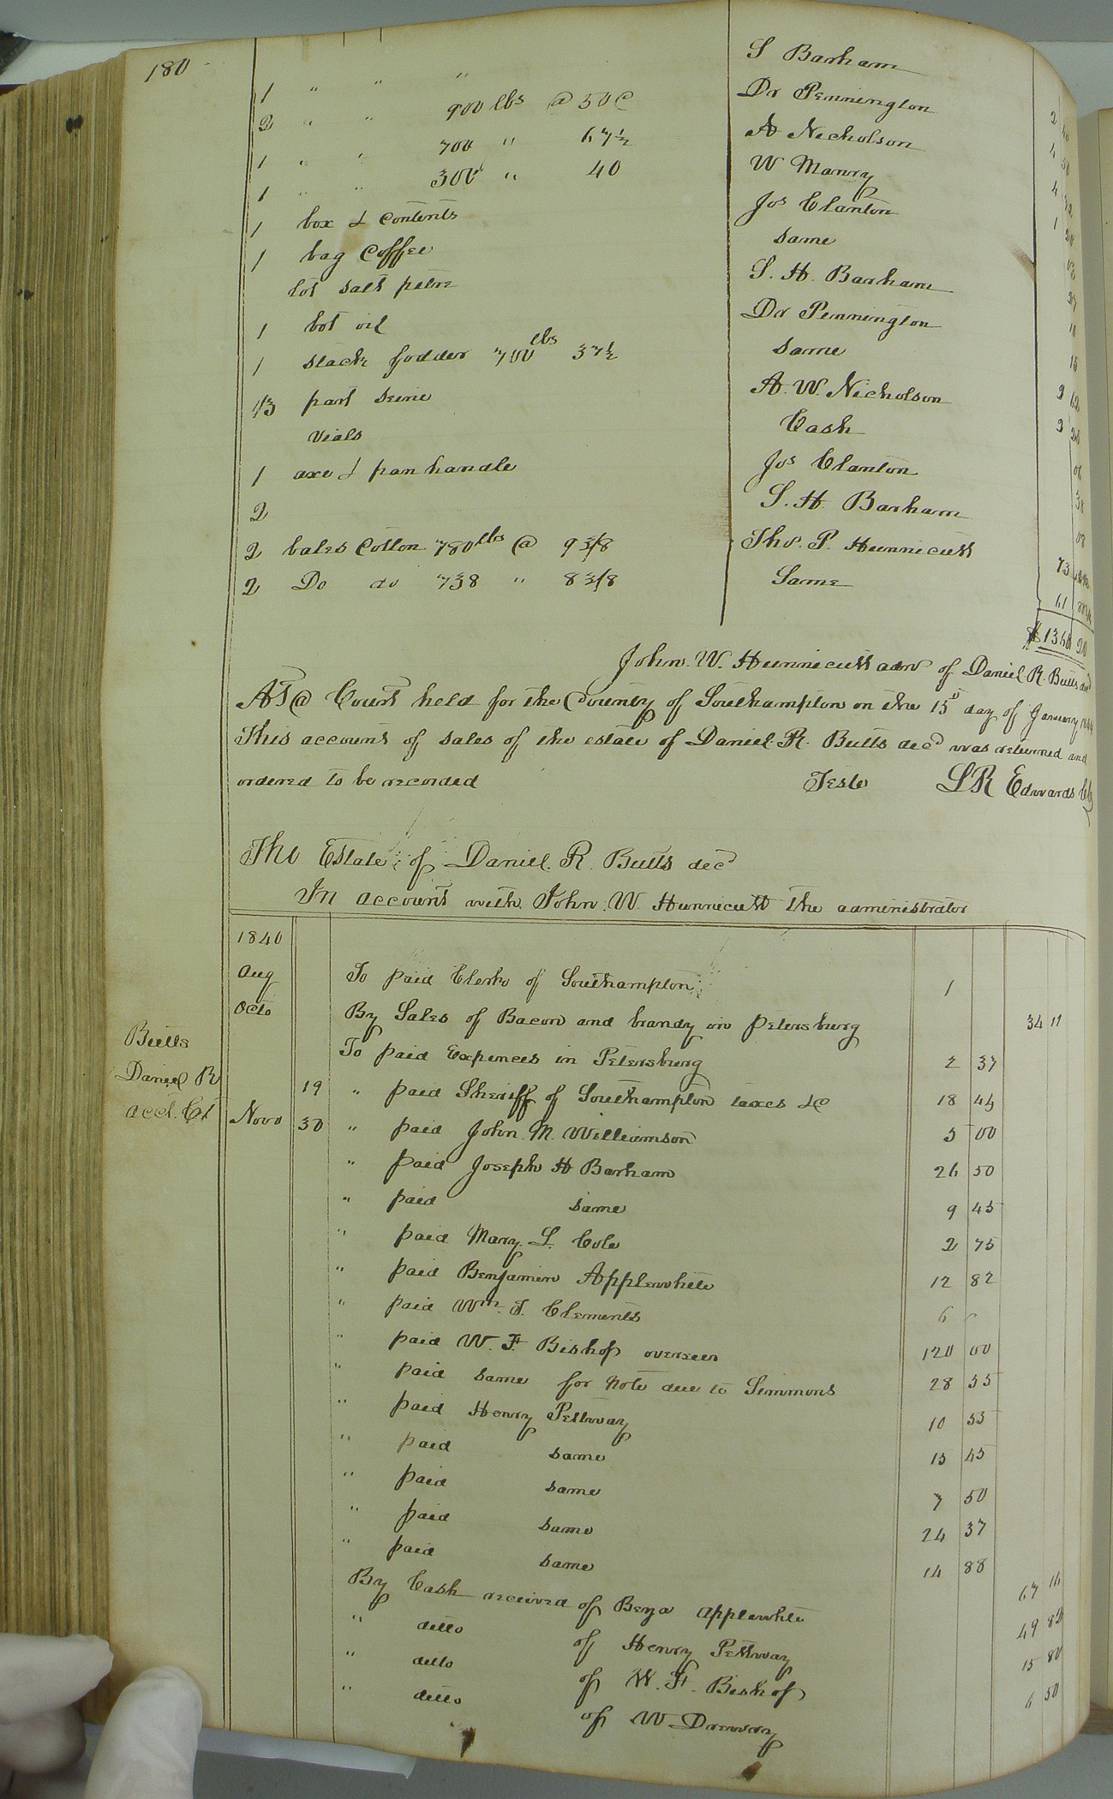 180
1 " " " S Barham
2 " " 900 lbs @ 50C Dr Pennington
1 " " 700 " 67½ A Nicholson
1 " " 300 " 40 W Manry
1 box & contents Jos Clanton
1 bag Coffee same
Lot salt petre S. H. Barham
1 bot oil Dr Pennington
1 stack fodder 700 lbs 37½ same
1/3 part seine A. W. Nicholson
vials Cash
1 axe & pan handle Jos Clanton
2 S. H. Barham
2 bales Cotton 780 lbs @ 9 3/8 Tho. P. Hunnicutt
2 Do do 738 " 8 3/8 Same
John W. Hunnicutt adm of Daniel R. Butts decd
At @ Court held for the County of Southampton on the 15 day of January
This account of sales of the estate of Daniel R. Butts decd was returned and
ordered to be recorded Teste L R Edwards
The Estate of Daniel R. Butts decd
In account with John W. Hunnicutt the administrator
1840
Aug To paid Clerk of Southampton 1
Octo By Sales of Bacon and brandy in Petersburg 34 11
To paid Expences in Petersburg 2 37
Butts
Daniel R
acct. Ct
19 " paid Sheriff of Southampton taxes &c 18 45
Novo 30 " paid John M. Williamson 5 00
" paid Joseph H Barham 26 50
" paid same 9 45
" paid Mary L. Cole 2 75
" paid Benjamin Applewhite 12 82
" paid Wm. J. Clements 6
" paid W. F. Bishop overseer 120 00
" paid same for Note due to Simmons 28 55
" paid Henry Pettway 10 55
" paid same 15 45
" paid same 7 50
" paid same 24 37
" paid same 14 88
By Cash received of Benja Applewhite 67 16
" ditto of Henry Pettway 49 80
" ditto of W. F. Bishop 15 80
" ditto of W Drewry 6 50